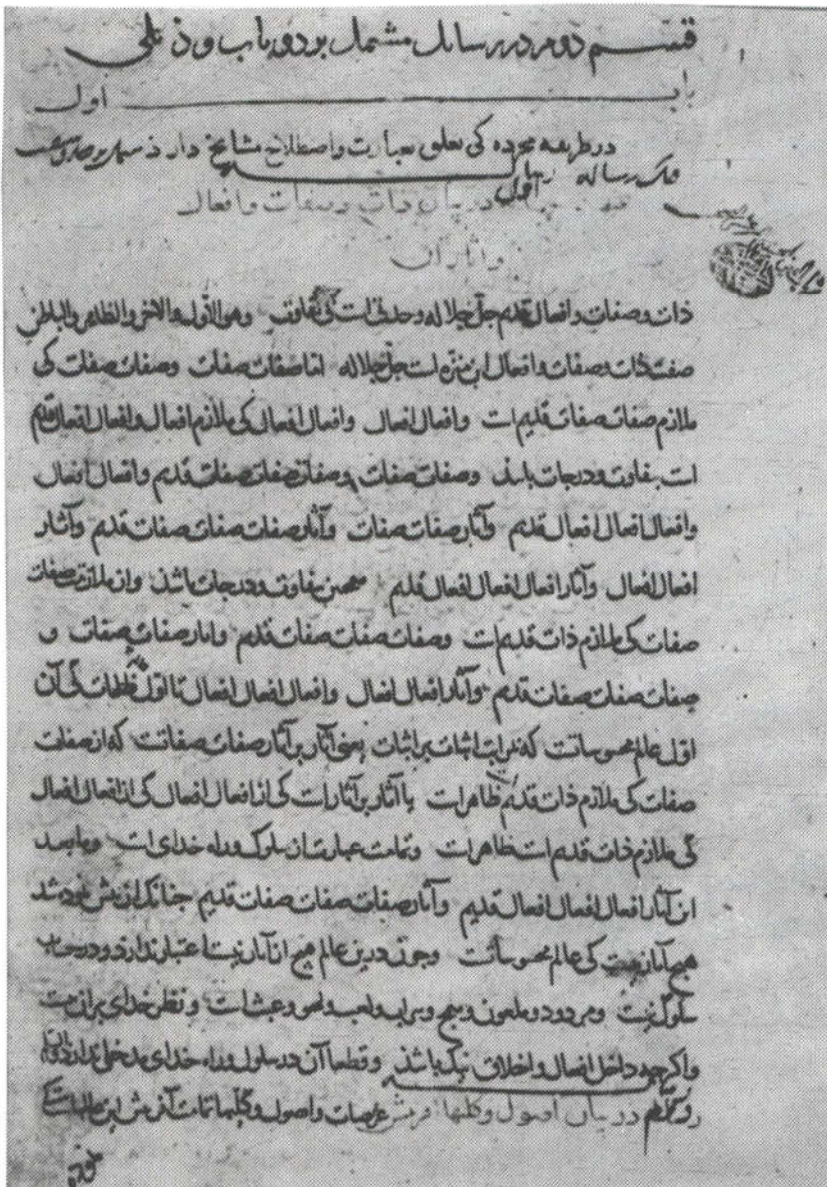 قسم دوم در رسایل مشتمل بر دو باب و ذیلی
باب اول
در طریقه مجرده کی تعلق بعبارت و اصطلاح مشایخ دارد
رساله اول
در بیان ذات و صفات و افعال
و آثار آن
ذات و صفات و افعال قدیم جل جلاله وحدنی است کی تفاوت وهو الاول والآخر والظاهر والباطن
صفت ذات و صفات و افعال ازین منزه است جل جلاله اما صفات صفات وصفات صفات کی
ملازم صفات صفات قدیم است وافعال افعال وافعال افعال کی ملازم افعال وافعال افعال قدیم
است بتفاوت ودرجات باشذ وصفات صفات وصفات صفات صفات قدیم وافعال افعال
وافعال افعال افعال قدیم وآثار صفات صفات وآثار صفات صفات صفات قدیم وآثار
افعال افعال وآثار افعال افعال افعال قدیم همچنین بتفاوت ودرجات باشذ واز ملازمت صفات
صفات کی ملازم ذات قدیم است وصفات صفات صفات قدیم وآثار صفات صفات و
صفات صفات صفات قدیم وآثار افعال افعال وافعال افعال افعال تا اول کی آن
اول عالم محسوساتست که اثبات بر اثبات یعنی آثار بر آثار صفات صفاتست که از صفات
صفات کی ملازم ذات قدیم ظاهر است یا آثار بر آثار است کی از افعال افعال کی از افعال افعال
کی ملازم ذات قدیم است ظاهر است وتمامت عبارت از سلوک وراه خدای است وما بعد
این آثار افعال افعال افعال قدیم وآثار صفات صفات صفات قدیم چنانک از پیش نموده شد
هیچ آثار نیست کی عالم محسوساتست وچون درین عالم هیچ از آثار نیست اعتبار ندارد ودر حساب
سلوک نیست ومردود وملعون وهیچ وسراب ولعب ولهو وعبث است ونظر خدای بران نیست
واگرچه داخل افعال واخلاق نیک باشذ وقطعا آن در سلوک وراه خدای مدخلی ندارد
در بیان اصول وکلها آفرینش عرصات واصول وکلیها تمامت آفرینش این عالمها